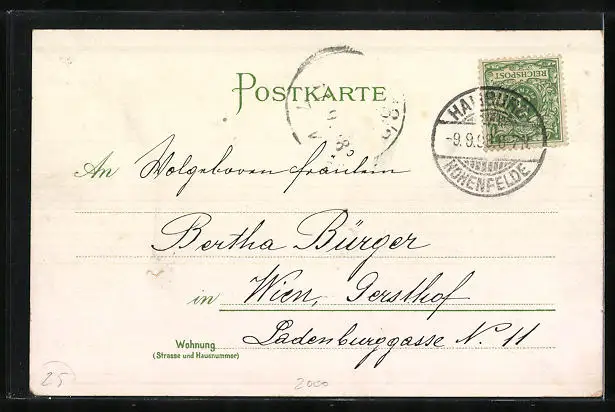 POSTKARTE
REICHSPOST
HAMBURG
-9.9.98
HOHENFELDE
An Wolgeboren fräulein
Bertha Bürger
in Wien, Gersthof
Wohnung
(Strasse und Hausnummer)
Ladenburggasse N. 11
25
2000